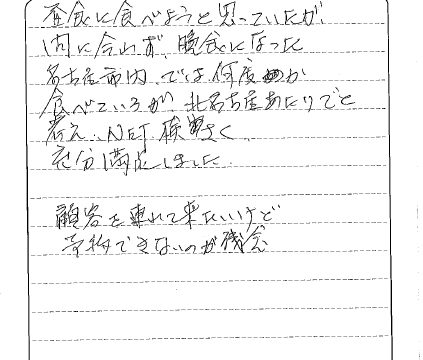 昼食に食べようと思っていたが
間に合わず、晩食になった
名古屋市内では何度か
食べているが、北名古屋あたりでと
考え、NET検さく、
充分満足しました。
顧客を連れて来たいけど
予約できないのが残念